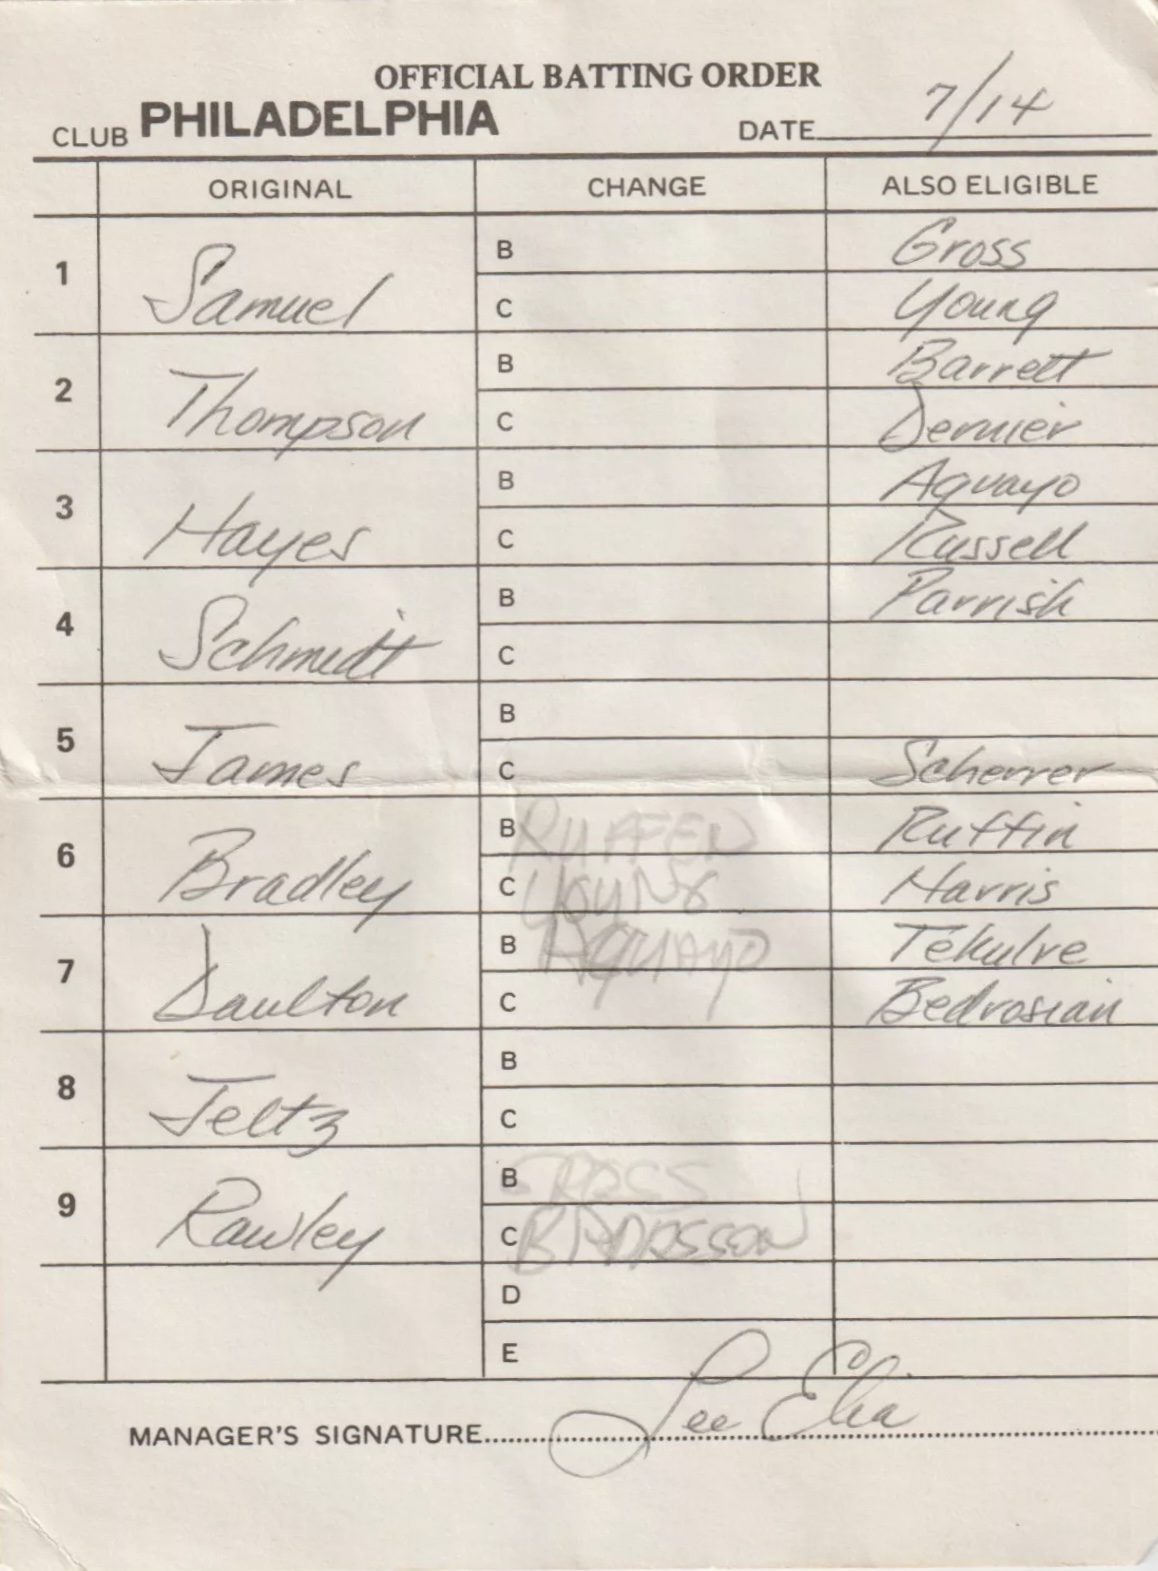 OFFICIAL BATTING ORDER
CLUB PHILADELPHIA DATE 7/14
ORIGINAL CHANGE ALSO ELIGIBLE
1 Samuel B Gross
C Young
2 Thompson B Barrett
C Dernier
3 Hayes B Aguayo
C Russell
4 Schmidt B Parrish
C
5 James B
C Scherrer
6 Bradley B RUFFEN Ruffin
C YOUNG Harris
7 Daulton B AGUAYO Tekulve
C Bedrosian
8 Jeltz B
C
9 Rawley B GROSS
C
D
E
MANAGER'S SIGNATURE Lee Elia